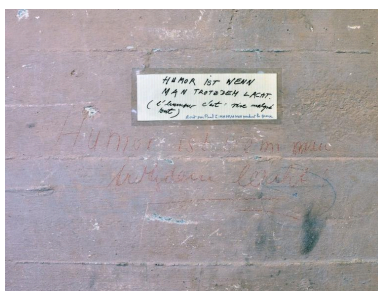 HUMOR IST WENN
MAN TROTZDEM LACHT.
(l'humour c'est: rire malgré
tout)
Humor ist wenn man
trotzdem lacht